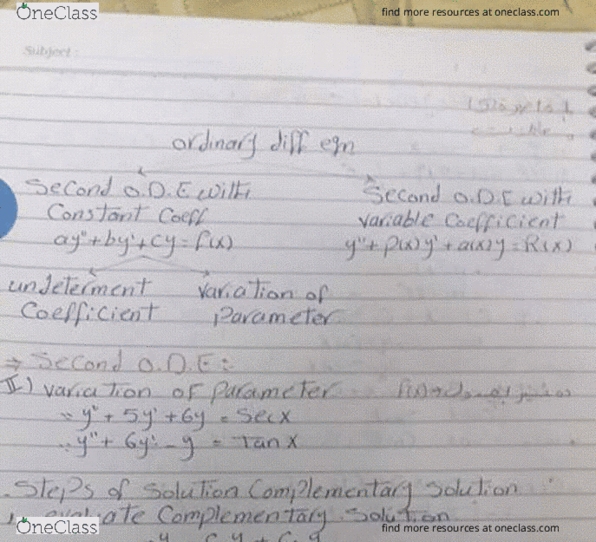 OneClass
find more resources at oneclass.com
Subject:
ordinary diff eqn
Second O.D.E with
Constant Coeff
ay''+by'+cy=f(x)
Second O.D.E with
variable Coefficient
y''+p(x)y'+a(x)y=R(x)
undeterment
Coefficient
variation of
parameter
⇒ Second O.D.E:
II) variation of parameter
y''+5y'+6y = Secx
y''+6y'-y = Tanx
Steps of Solution Complementary Solution
Complementary Solution
OneClass
find more resources at oneclass.com